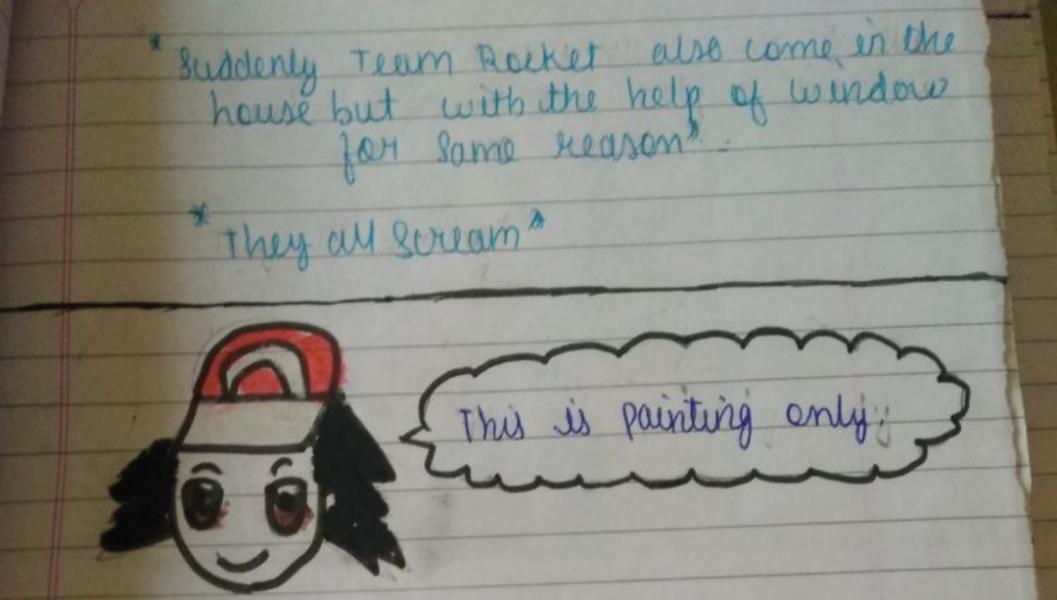 *Suddenly Team Rocket also come in the
house but with the help of window
for same reason*.
*They all Scream*
This is painting only.